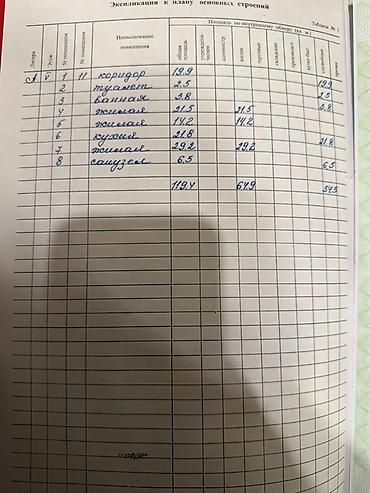 Экспликация к плану основных строений
Таблица № 1
Площадь по внутреннему обмеру (кв. м.)
Литера Этаж № помещения № помещения Наименование помещения общая площадь жилая торговые складские служебное прочие
А V 1 11 коридор 19.9 19.9
2 туалет 2.5 2.5
3 ванная 3.8 3.8
4 жилая 21.5 21.5
5 жилая 14.2 14.2
6 кухня 21.8 21.8
7 жилая 29.2 29.2
8 санузел 6.5 6.5
119.4 64.9 54.5